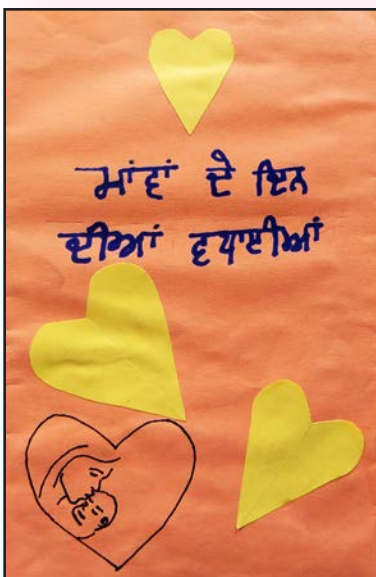 ਮਾਂਵਾਂ ਦੇ ਦਿਨ
ਦੀਆਂ ਵਧਾਈਆਂ